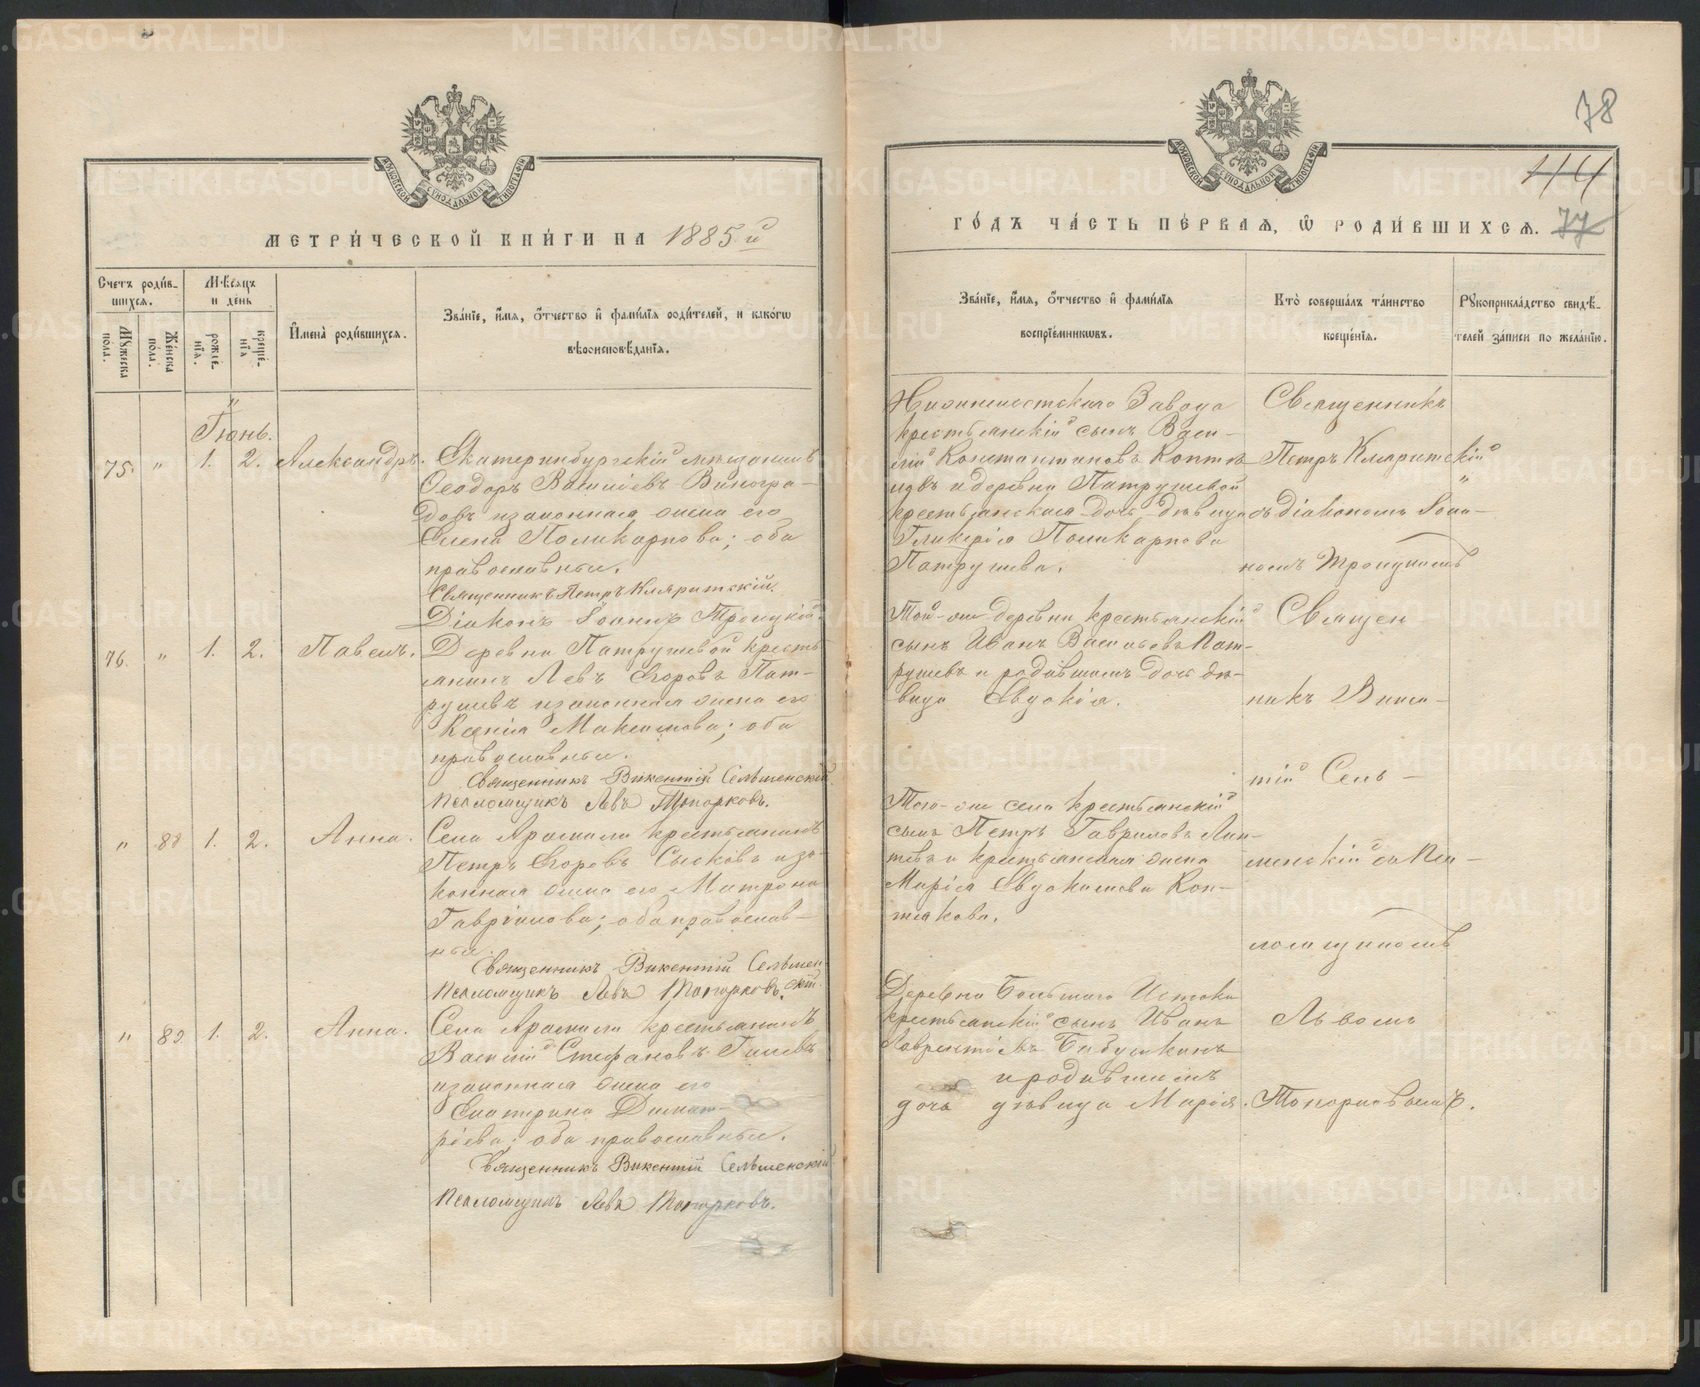 МЕТРИ́ЧЕСКОЙ КНИ́ГИ НА 1885 й
Счетъ роди́в-
шихсѧ.
Мѣ́сѧцъ
и день
Мꙋжеска
пола.
Же́нска
пола.
рожде́-
нїѧ.
креще́-
нїѧ
И҆мена̀ роди́вшихсѧ.
Зва́нїе, и҆́мѧ, ѻ҆́тчество и҆ фами́лїѧ роди́телей, и како́гѡ
вѣроисповѣ́данїѧ.
"
Іюнь.
75. " 1. 2. Александръ. Екатеринбургскій мѣщанинъ
Ѳеодоръ Васильевъ Виногра-
довъ и законная жена его
Елена Поликарпова; оба
православные.
Священникъ Петръ Кляритскій.
Діаконъ Іоаннъ Троицкій
76. " 1. 2. Павелъ. Деревни Патрушевой кресть-
янинъ Левъ Егоровъ Пат-
рушевъ и законная жена его
Ксенія Максимова; оба
православные.
Священникъ Викентій Сельменскій.
Псаломщикъ Левъ Топорковъ.
" 88 1. 2. Анна. Села Арамили крестьянинъ
Петръ Егоровъ Сысковъ и за-
конная жена его Матрона
Гавріилова; оба православ-
ные.
Священникъ Викентій Сельмен-
скій.
Псаломщикъ Левъ Топорковъ.
" 89 1. 2. Анна. Села Арамили крестьянинъ
Василій Стефановъ Гилевъ
и законная жена его
Екатерина Димит-
ріева; оба православные.
Священникъ Викентій Сельменскій
Псаломщикъ Левъ Топорковъ.
78
144
77
ГО́ДЪ ЧА́СТЬ ПЕ́РВАѦ, Ѡ҆ РОДИ́ВШИХСѦ.
Зва́нїе, и҆́мѧ, ѻ҆́тчество и҆ фами́лїѧ
воспрїе́мникѡвъ.
Кто̀ соверша́лъ та́инство
креще́нїѧ.
Рꙋкоприкла́дство свидѣ́-
телей за́писи по жела́нїю.
Нижнеисетскаго Завода
крестьянскій сынъ Васи-
лій Константиновъ Коптя-
ковъ и деревни Патрушевой
крестьянская дочь дѣвица
Гликерія Поликарпова
Патрушева.
Священникъ
Петръ Кляритскій
"
съ Діакономъ Іоан-
номъ Троицкимъ
Той-же деревни крестьянскій
сынъ Иванъ Васильевъ Пат-
рушевъ и родившимъ дочь дѣ-
вица Евдокія.
Священ
никъ Викен-
тій Сель-
Того-же села крестьянскій
сынъ Петръ Гавриловъ Лап-
тевъ и крестьянская жена
Марія Евдокимова Коп-
тякова.
менскій съ Пса-
ломщикомъ
Деревни Большаго Истока
крестьянскій сынъ Иванъ
Лаврентіевъ Бабушкинъ
и родившимъ
дочь дѣвица Марія.
Львомъ
Топорковымъ.
METRIKI.GASO-URAL.RU